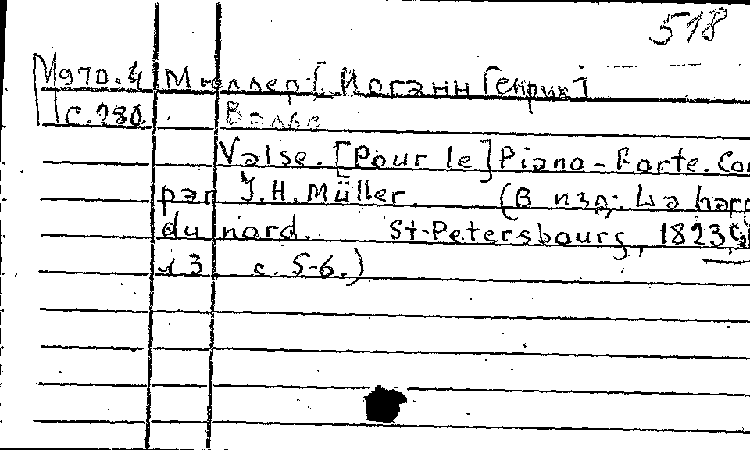 518
М970.4 Мюллер [Иоганн Генрих]
с.280 Вальс
Valse. [Pour le] Piano-Forte. Com
par J.H. Müller. (В изд: La harp
du nord. St-Petersbourg, 1823,
№3 с. 5-6.)